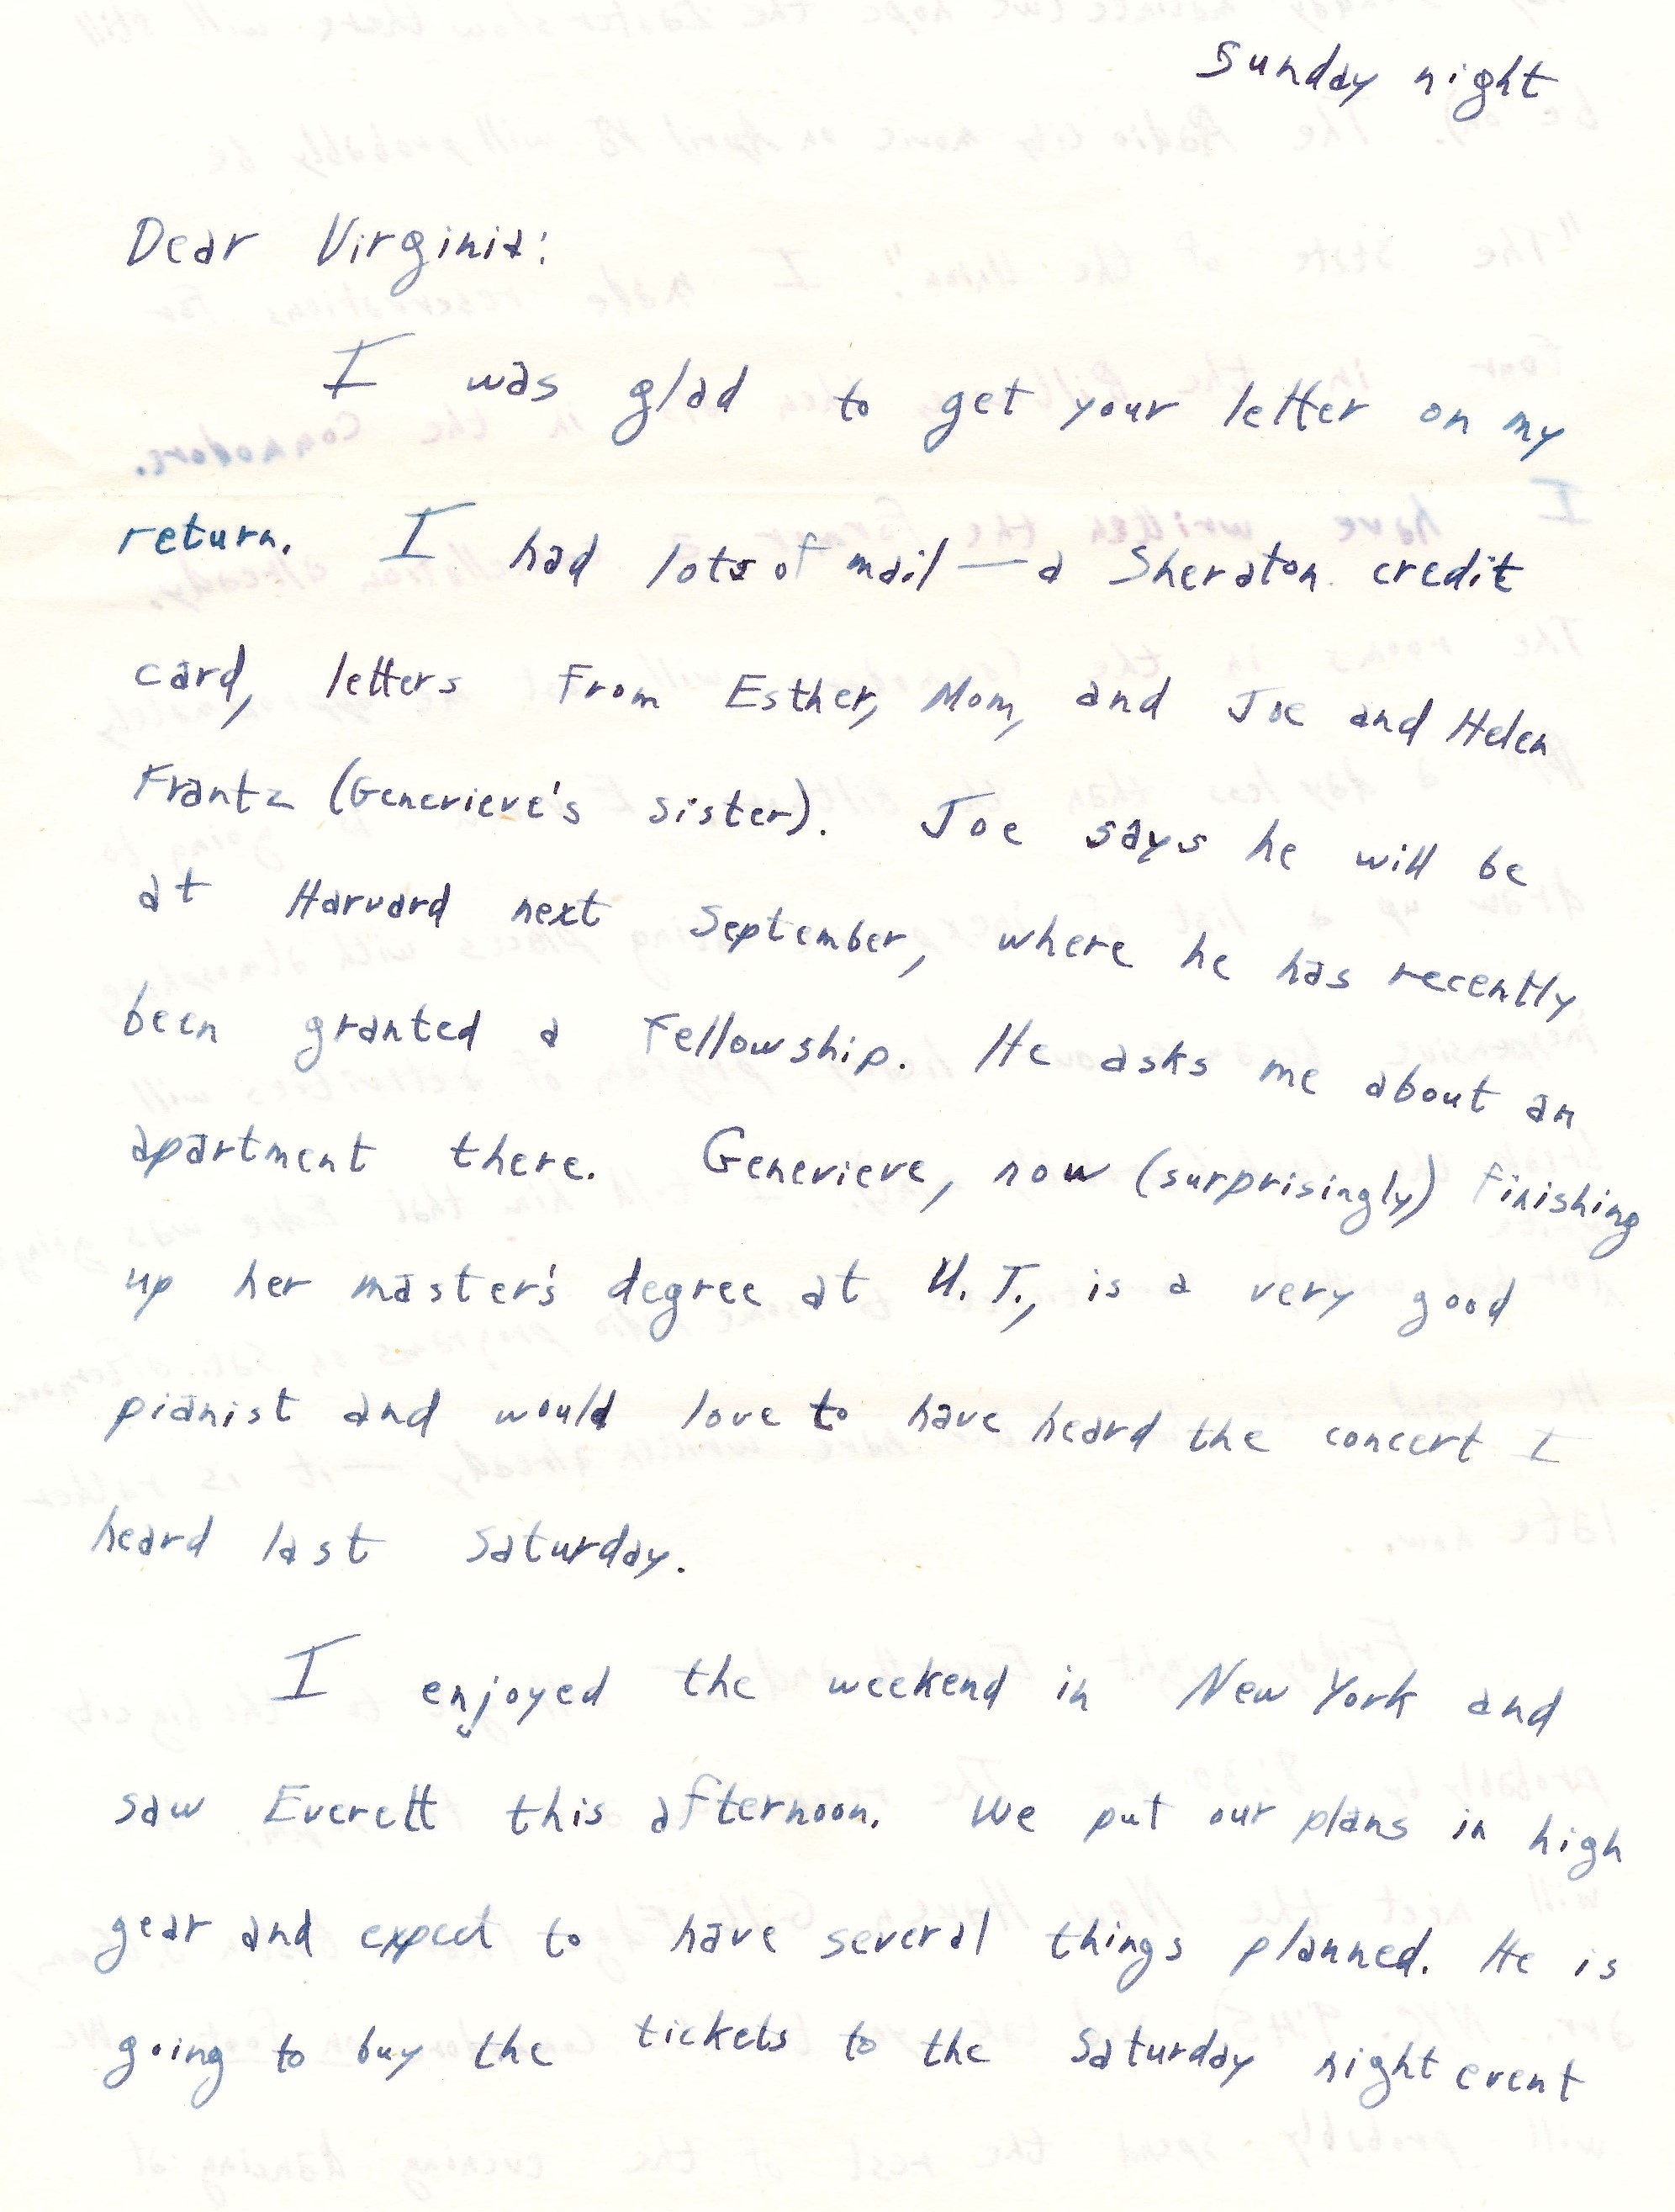 Sunday night
Dear Virginia:
I was glad to get your letter on my
return. I had lots of mail — a Sheraton credit
card, letters from Esther, Mom, and Joe and Helen
Frantz (Genevieve's sister). Joe says he will be
at Harvard next September, where he has recently
been granted a fellowship. He asks me about an
apartment there. Genevieve, now (surprisingly) finishing
up her master's degree at U.T., is a very good
pianist and would love to have heard the concert I
heard last Saturday.
I enjoyed the weekend in New York and
saw Everett this afternoon. We put our plans in high
gear and expect to have several things planned. He is
going to buy the tickets to the Saturday night event